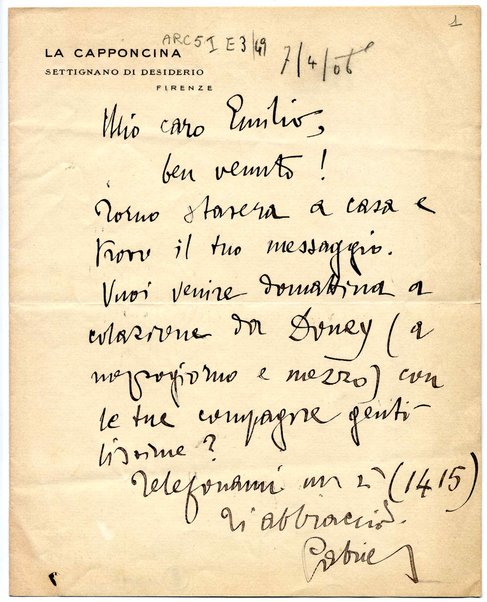 1
ARC5I E3/49
7/4/06
LA CAPPONCINA
SETTIGNANO DI DESIDERIO
FIRENZE
Mio caro Emilio,
ben venuto!
Torno stasera a casa e
trovo il tuo messaggio.
Vuoi venire domattina a
colazione da Doney (a
mezzogiorno e mezzo) con
le tue compagne genti-
lissime?
Telefonami un sì (1415)
Ti abbraccio.
Gabriel